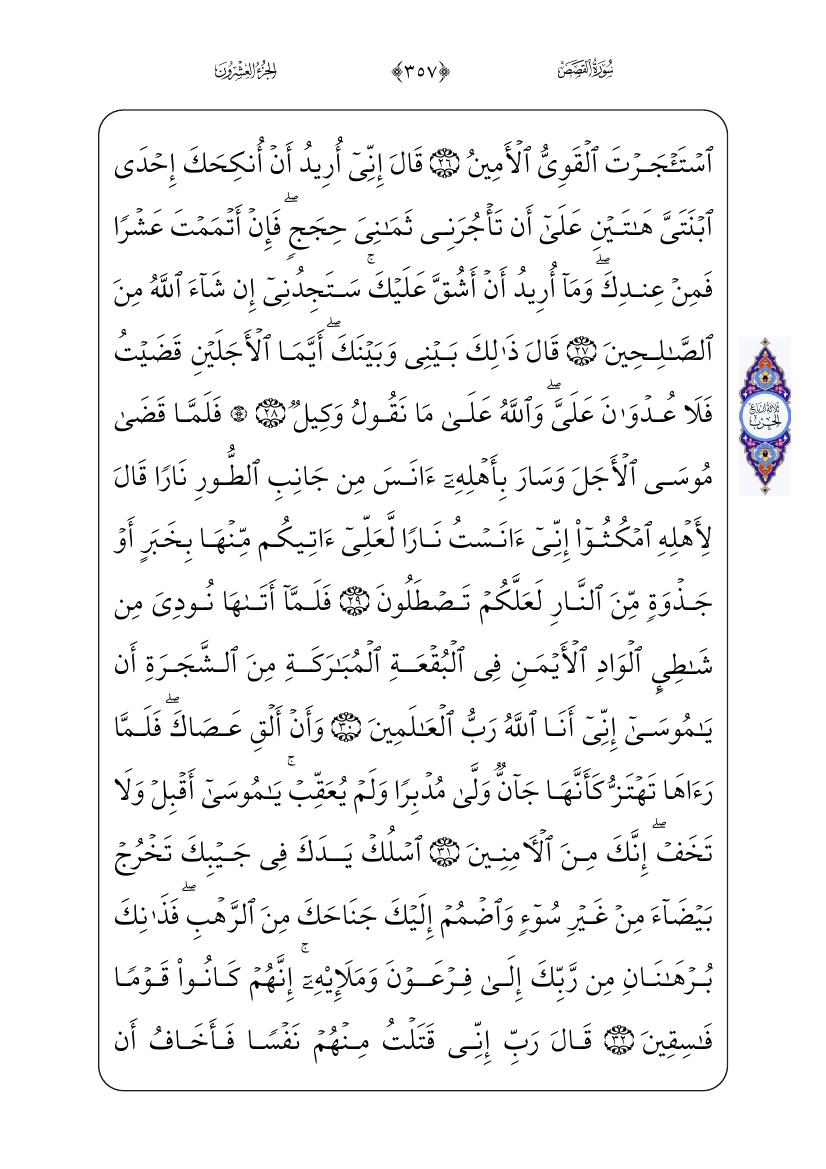 سُورَةُ القَصَصِ
﴿٣٥٧﴾
الجُزْءُ العِشْرُونَ
ٱسْتَـْٔجَرْتَ ٱلْقَوِىُّ ٱلْأَمِينُ ٢٦ قَالَ إِنِّىٓ أُرِيدُ أَنْ أُنكِحَكَ إِحْدَى
ٱبْنَتَىَّ هَـٰتَيْنِ عَلَىٰٓ أَن تَأْجُرَنِى ثَمَـٰنِىَ حِجَجٍۢ ۖ فَإِنْ أَتْمَمْتَ عَشْرًا
فَمِنْ عِندِكَ ۖ وَمَآ أُرِيدُ أَنْ أَشُقَّ عَلَيْكَ ۚ سَتَجِدُنِىٓ إِن شَآءَ ٱللَّهُ مِنَ
ٱلصَّـٰلِحِينَ ٢٧ قَالَ ذَٰلِكَ بَيْنِى وَبَيْنَكَ ۖ أَيَّمَا ٱلْأَجَلَيْنِ قَضَيْتُ
فَلَا عُدْوَٰنَ عَلَىَّ ۖ وَٱللَّهُ عَلَىٰ مَا نَقُولُ وَكِيلٌۭ ٢٨ ۞ فَلَمَّا قَضَىٰ
ثلاثة أرباع
الحزب
مُوسَى ٱلْأَجَلَ وَسَارَ بِأَهْلِهِۦٓ ءَانَسَ مِن جَانِبِ ٱلطُّورِ نَارًا قَالَ
لِأَهْلِهِ ٱمْكُثُوٓا۟ إِنِّىٓ ءَانَسْتُ نَارًا لَّعَلِّىٓ ءَاتِيكُم مِّنْهَا بِخَبَرٍ أَوْ
جَذْوَةٍۢ مِّنَ ٱلنَّارِ لَعَلَّكُمْ تَصْطَلُونَ ٢٩ فَلَمَّآ أَتَىٰهَا نُودِىَ مِن
شَـٰطِئِ ٱلْوَادِ ٱلْأَيْمَنِ فِى ٱلْبُقْعَةِ ٱلْمُبَـٰرَكَةِ مِنَ ٱلشَّجَرَةِ أَن
يَـٰمُوسَىٰٓ إِنِّىٓ أَنَا ٱللَّهُ رَبُّ ٱلْعَـٰلَمِينَ ٣٠ وَأَنْ أَلْقِ عَصَاكَ ۖ فَلَمَّا
رَءَاهَا تَهْتَزُّ كَأَنَّهَا جَآنٌّۭ وَلَّىٰ مُدْبِرًا وَلَمْ يُعَقِّبْ ۚ يَـٰمُوسَىٰٓ أَقْبِلْ وَلَا
تَخَفْ ۖ إِنَّكَ مِنَ ٱلْـَٔامِنِينَ ٣١ ٱسْلُكْ يَدَكَ فِى جَيْبِكَ تَخْرُجْ
بَيْضَآءَ مِنْ غَيْرِ سُوٓءٍۢ وَٱضْمُمْ إِلَيْكَ جَنَاحَكَ مِنَ ٱلرَّهْبِ ۖ فَذَٰنِكَ
بُرْهَـٰنَانِ مِن رَّبِّكَ إِلَىٰ فِرْعَوْنَ وَمَلَإِي۟هِۦٓ ۚ إِنَّهُمْ كَانُوا۟ قَوْمًا
فَـٰسِقِينَ ٣٢ قَالَ رَبِّ إِنِّى قَتَلْتُ مِنْهُمْ نَفْسًا فَأَخَافُ أَن